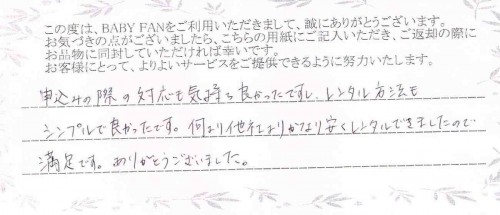 この度は、BABY FANをご利用いただきまして、誠にありがとうございます。
お気づきの点がございましたら、こちらの用紙にご記入いただき、ご返却の際に
お品物に同封していただければ幸いです。
お客様にとって、よりよいサービスをご提供できるように努力いたします。
申込みの際の対応も気持ち良かったですし、レンタル方法も
シンプルで良かったです。何より他社よりかなり安くレンタルできましたので
満足です。ありがとうございました。